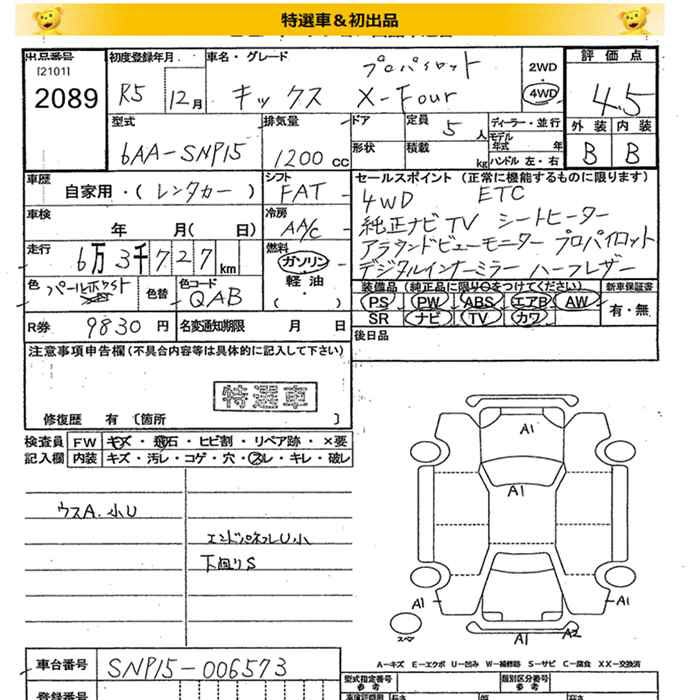 特選車＆初出品
出品番号
[2101]
2089
初度登録年月
R5 12月
車名・グレード
プロパイロット
キックス X-Four
2WD
4WD
評価点
4.5
外装 内装
B B
型式
6AA-SNP15
排気量
1200 cc
ドア
形状
定員
5 人
積載
kg
ディーラー・並行
モデル年式 年
ハンドル 左・右
車歴
自家用・(レンタカー)
シフト
FAT
車検
年 月( 日)
冷房
AA/C
走行
6万3千727km
燃料
ガソリン
軽油
・( )
色
パールホワイト
色替
色コード
QAB
R券 9830 円
名変通知期限 月 日
セールスポイント (正常に機能するものに限ります)
4WD ETC
純正ナビ TV シートヒーター
アラウンドビューモニター プロパイロット
デジタルインナーミラー ハーフレザー
装備品 (純正品に限り○をつけてください)
PS PW ABS エアB AW
SR ナビ TV カワ
新車保証書
有・無
後日品
注意事項申告欄(不具合内容等は具体的に記入して下さい)
特選車
修復歴 有 〔箇所 〕
検査員 FW キズ・飛石・ヒビ割・リペア跡・×要
記入欄 内装 キズ・汚レ・コゲ・穴・スレ・キレ・破レ
ウスA.小U
エンドパネルU小
下廻りS
A1
A1
A1 A1
スペア
A1 A2
A-キズ E-エクボ U-凹み W-補修跡 S-サビ C-腐食 XX-交換済
車台番号 SNP15-006573
登録番号
型式指定番号
参考
類別区分番号
参考